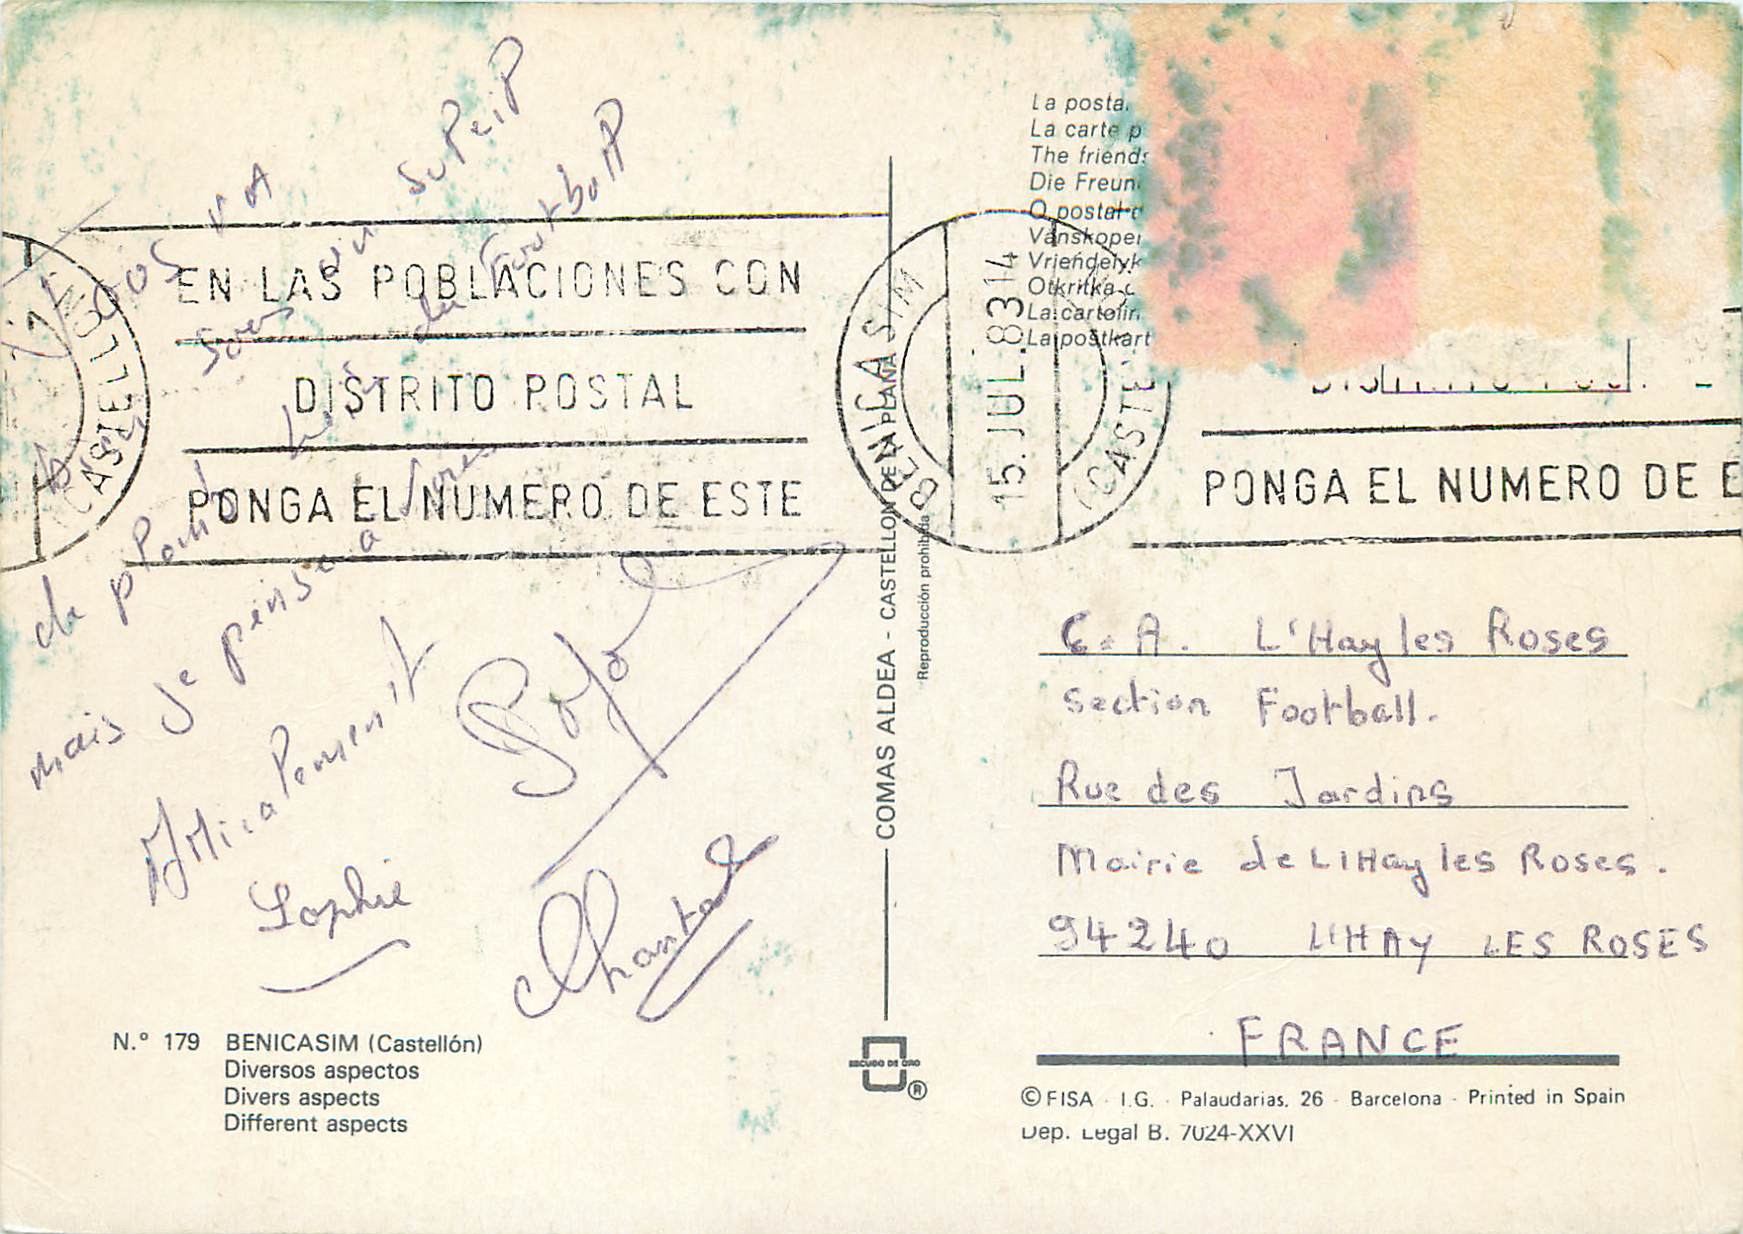 sous un soleil
de plomb loin du football
mais je pense à
Amicalement
Sophie
Chantal
EN LAS POBLACIONES CON
DISTRITO POSTAL
PONGA EL NUMERO DE ESTE
(CASTELLON)
BENICASIM
15.JUL.83 14
(CASTE
PONGA EL NUMERO DE E
La posta
La carte p
The friends
Die Freun
O postal
Vänskoper
Vriendelyk
Otkritka
La cartolin
La postkart
COMAS ALDEA - CASTELLON DE LA PLANA
Reproducción prohibida
C.A. L'Hay les Roses
Section Football.
Rue des Jardins
Mairie de L'Hay les Roses.
94240 L'HAY LES ROSES
FRANCE
N.º 179 BENICASIM (Castellón)
Diversos aspectos
Divers aspects
Different aspects
ESCUDO DE ORO
®
© FISA - I.G. - Palaudarias, 26 - Barcelona - Printed in Spain
Dep. Legal B. 7024-XXVI